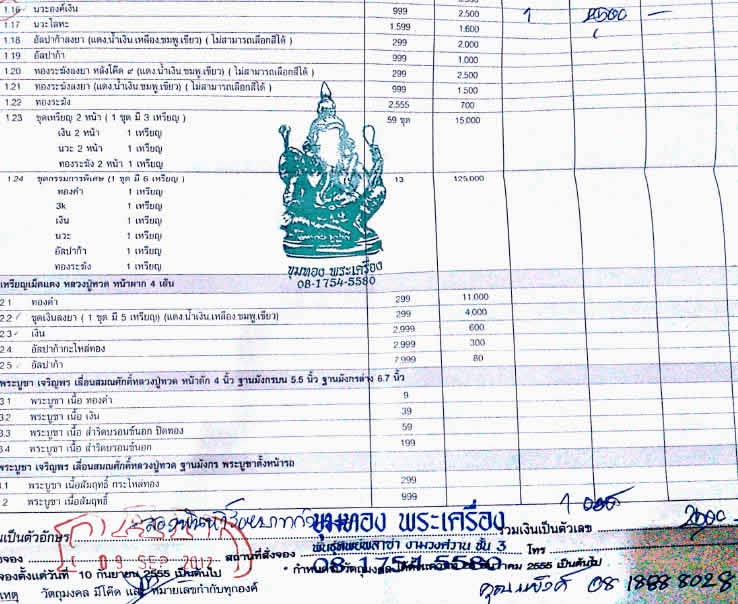 1.16 นวะองค์เงิน 999 2,500 1 2500 –
1.17 นวะโลหะ 1,599 1,600
1.18 อัลปาก้าลงยา (แดง,น้ำเงิน,เหลือง,ชมพู,เขียว) ( ไม่สามารถเลือกสีได้ ) 299 2,000
1.19 อัลปาก้า 999 1,000
1.20 ทองระฆังลงยา หลังโค๊ด ๙ (แดง,น้ำเงิน,ชมพู,เขียว) ( ไม่สามารถเลือกสีได้ ) 299 2,500
1.21 ทองระฆังลงยา (แดง,น้ำเงิน,ชมพู,เขียว) ( ไม่สามารถเลือกสีได้ ) 999 1,500
1.22 ทองระฆัง 2,555 700
1.23 ชุดเหรียญ 2 หน้า ( 1 ชุด มี 3 เหรียญ ) 59 ชุด 15,000
เงิน 2 หน้า 1 เหรียญ
นวะ 2 หน้า 1 เหรียญ
ทองระฆัง 2 หน้า 1 เหรียญ
1.24 ชุดกรรมการพิเศษ (1 ชุด มี 6 เหรียญ ) 13 125,000
ทองคำ 1 เหรียญ
3k 1 เหรียญ
เงิน 1 เหรียญ
นวะ 1 เหรียญ
อัลปาก้า 1 เหรียญ
ทองระฆัง 1 เหรียญ
ขุมทอง พระเครื่อง
08-1754-5580
เหรียญเม็ดแตง หลวงปู่ทวด หน้าผาก 4 เส้น
2.1 ทองคำ 299 11,000
2.2 ชุดเงินลงยา ( 1 ชุด มี 5 เหรียญ) (แดง,น้ำเงิน,เหลือง,ชมพู,เขียว) 299 4,000
2.3 เงิน 2,999 600
2.4 อัลปาก้ากะไหล่ทอง 2,999 300
2.5 อัลปาก้า 2,999 80
พระบูชา เจริญพร เลื่อนสมณศักดิ์หลวงปู่ทวด หน้าตัก 4 นิ้ว ฐานมังกรบน 5.5 นิ้ว ฐานมังกรล่าง 6.7 นิ้ว
3.1 พระบูชา เนื้อ ทองคำ 9
3.2 พระบูชา เนื้อ เงิน 39
3.3 พระบูชา เนื้อ สำริดบรอนซ์นอก ปิดทอง 59
3.4 พระบูชา เนื้อ สำริดบรอนซ์นอก 199
พระบูชา เจริญพร เลื่อนสมณศักดิ์หลวงปู่ทวด ฐานมังกร พระบูชาตั้งหน้ารถ
4.1 พระบูชา เนื้อสัมฤทธิ์ กระไหล่ทอง 299
2 พระบูชา เนื้อสัมฤทธิ์ 999
เป็นตัวอักษร ขุมทอง พระเครื่อง รวมเงินเป็นตัวเลข
09 SEP 2012 สถานที่สั่งจอง พันธุ์ทิพย์พลาซ่า งามวงศ์วาน ชั้น 3 โทร
จองตั้งแต่วันที่ 10 กันยายน 2555 เป็นต้นไป 08-1754-5580 2555 เป็นต้นไป
วัตถุมงคล มีโค๊ด และหมายเลขกำกับทุกองค์